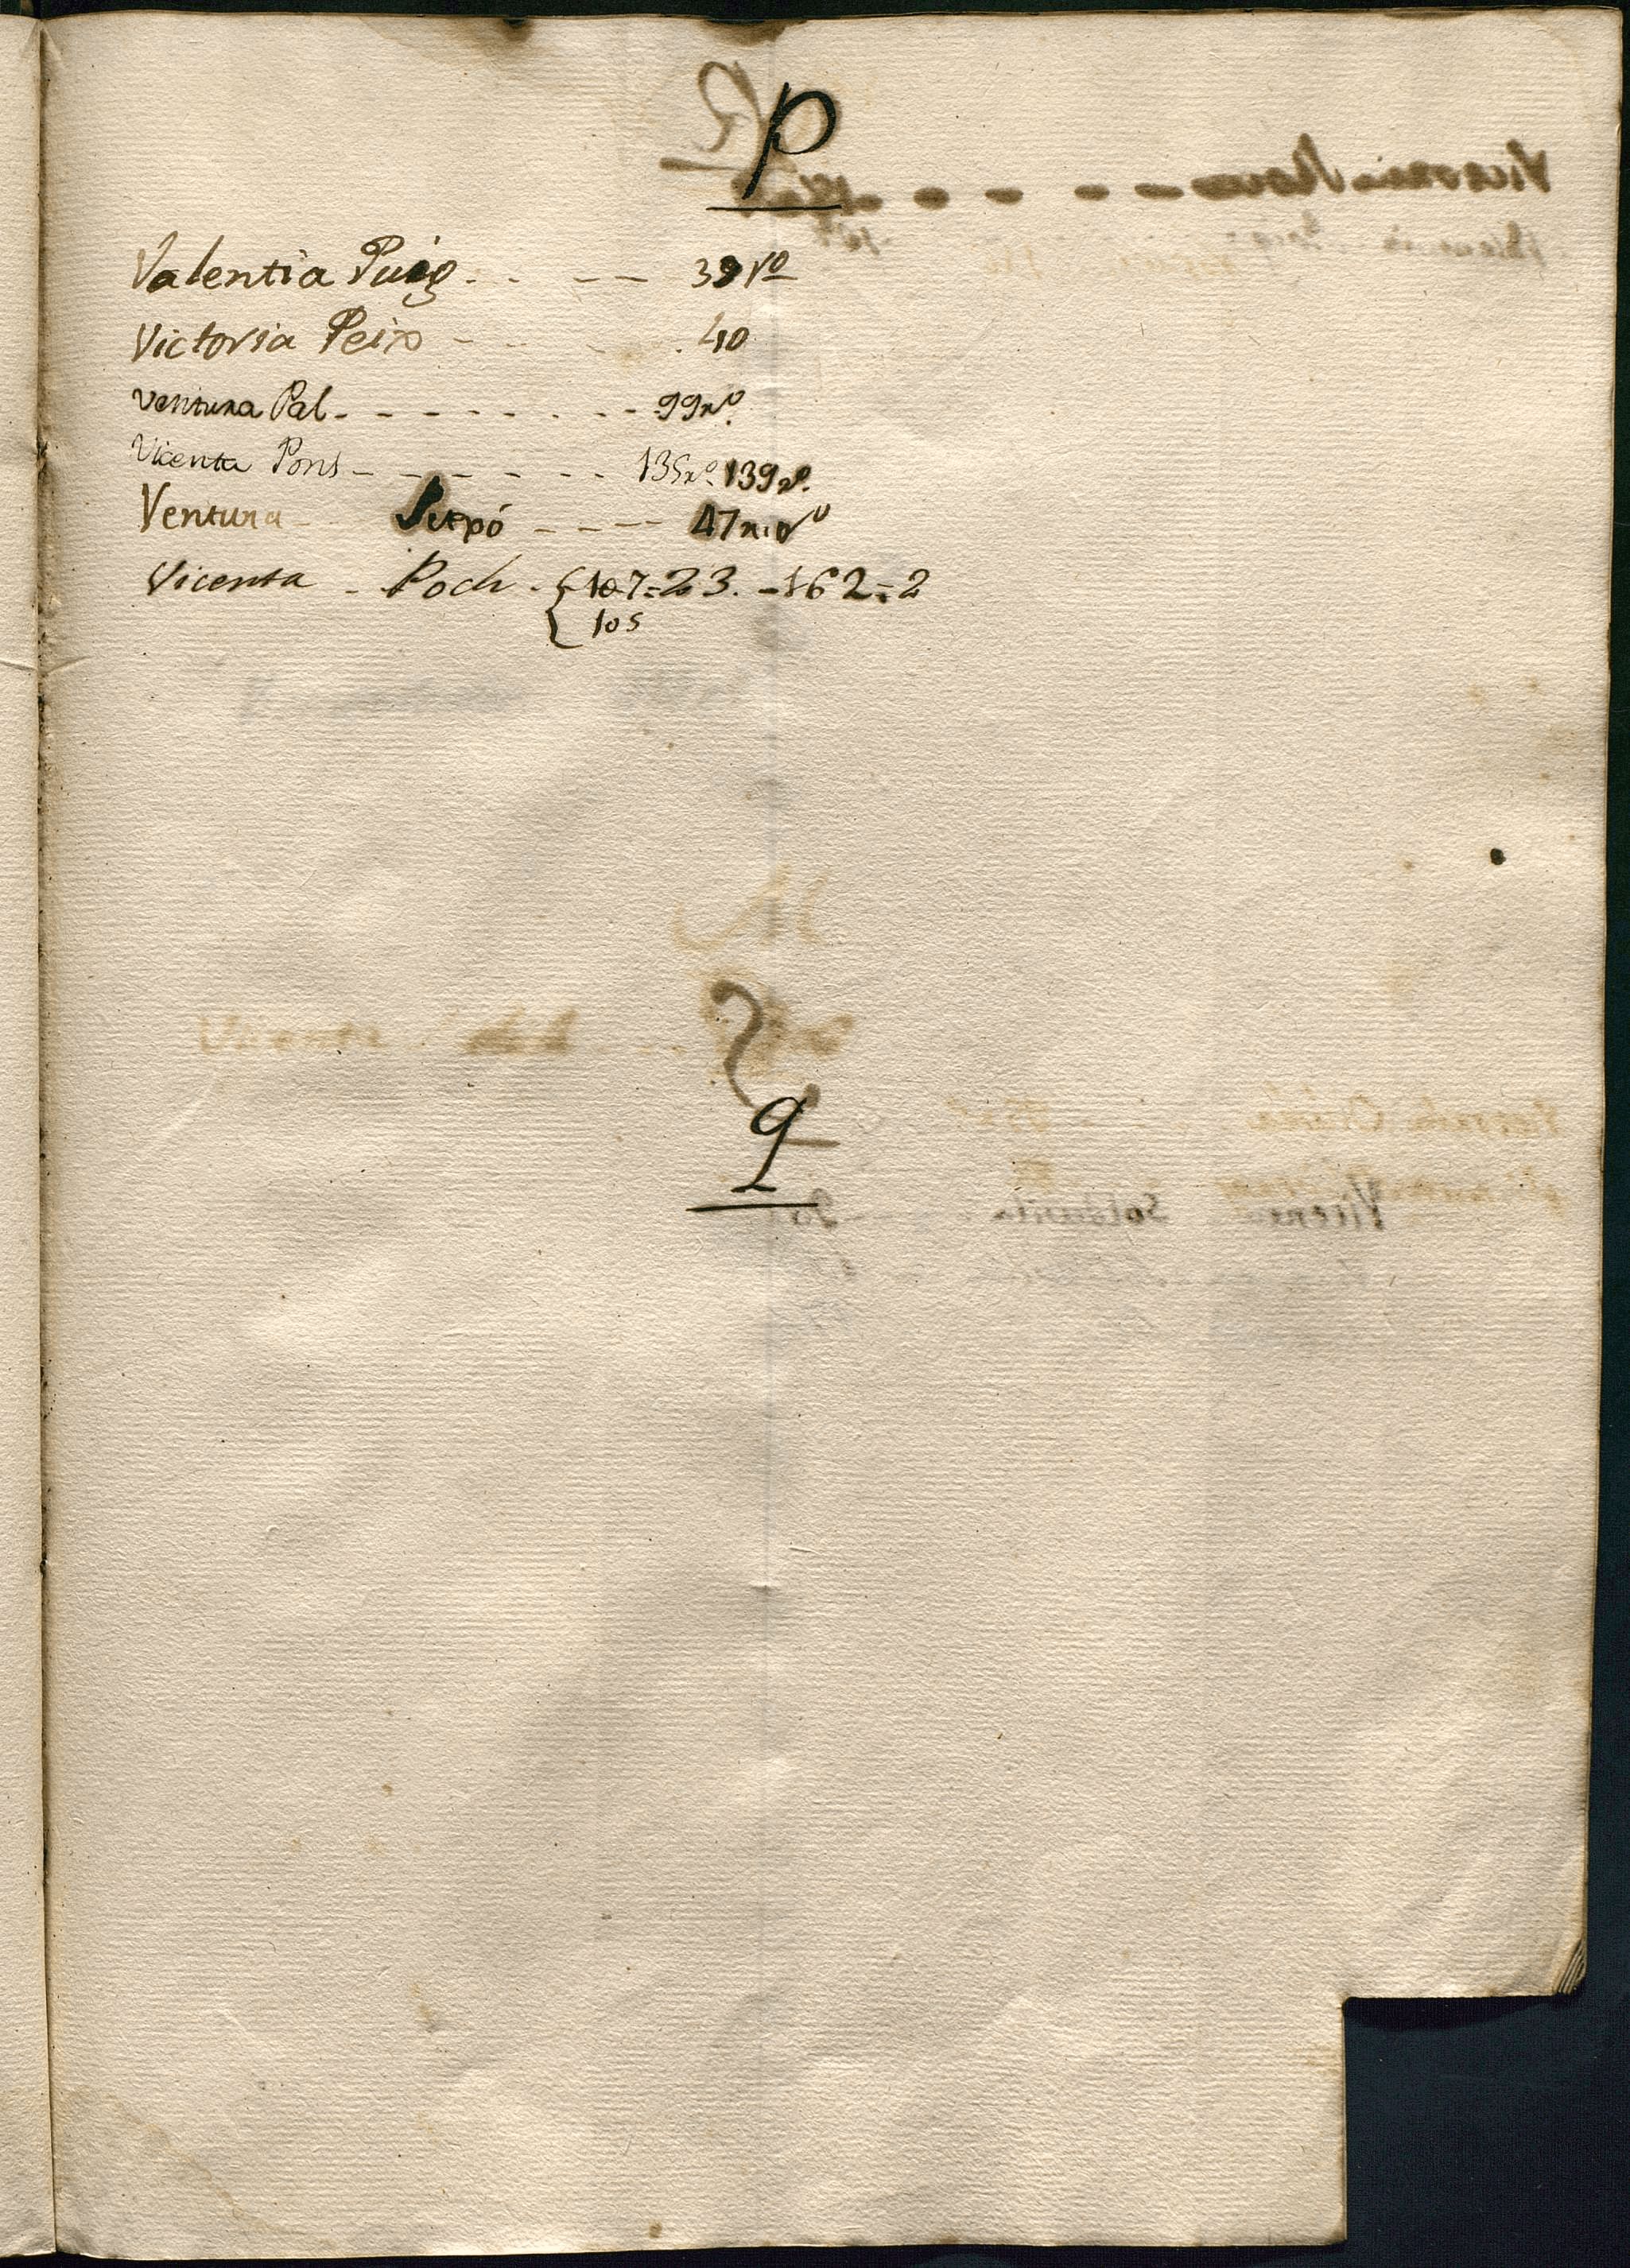 P
Valentia Puig - - - - 39 vo
Victoria Peix - - - - 40
Ventura Pal - - - - - - - - 99 vo
Vicenta Pons - - - - - - 135 vo 139 vo
Ventura - - - - 47
Vicenta - Poch - { 107=23. - 162=2
{ 105
q